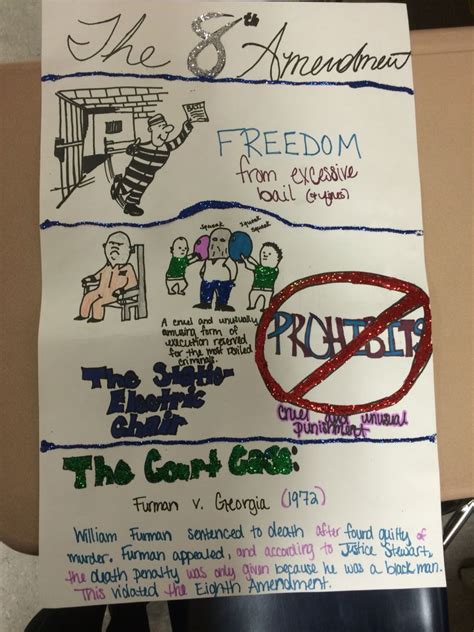 The 8th Amendment
BAIL
FREEDOM
from excessive
bail (& fines)
squeak
squeak
squeak
A cruel and unusually
amusing form of
execution reserved
for the most reviled
criminals.
The Static-
Electric
Chair
PROHIBITS
cruel and unusual
punishment
The Court Case:
Furman v. Georgia (1972)
William Furman sentenced to death after found guilty of
murder. Furman appealed, and according to Justice Stewart,
the death penalty was only given because he was a black man.
This violated the Eighth Amendment.